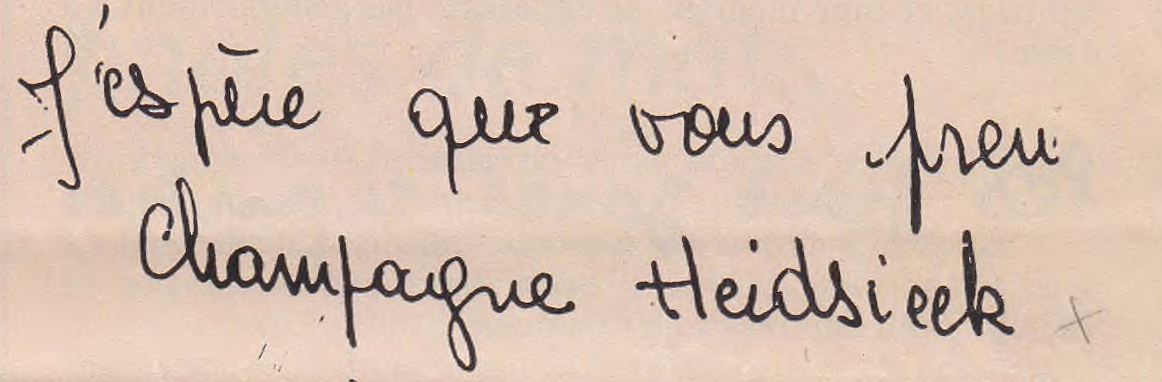 J'espère que vous pren
Champagne Heidsieck